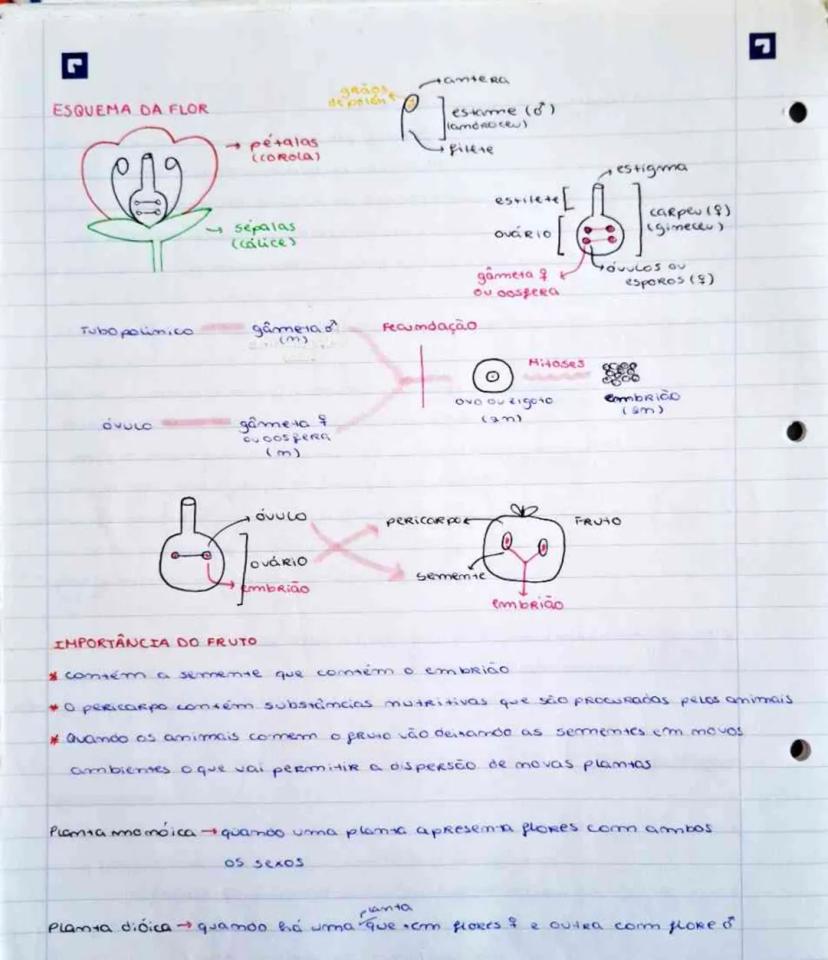 ESQUEMA DA FLOR
grãos
de pólen
antera
estame (♂)
(androceu)
filete
pétalas
(COROLA)
sépalas
(cálice)
estigma
estilete
OVÁRIO
carpelo (♀)
(gineceu)
gâmeta ♀
ou oosfera
ÓVULOS OU
esporos (♀)
Tubo polínico
gâmeta ♂
(n)
Fecundação
ÓVULO
gâmeta ♀
ou oosfera
(n)
ovo ou zigoto
(2n)
Mitoses
embrião
(2n)
ÓVULO
OVÁRIO
embrião
pericarpo
semente
FRUTO
embrião
IMPORTÂNCIA DO FRUTO
* contém a semente que contém o embrião
* O pericarpo contém substâncias nutritivas que são procuradas pelos animais
* Quando os animais comem o fruto vão deixando as sementes em novos
ambientes o que vai permitir a dispersão de novas plantas
Planta monóica → quando uma planta apresenta flores com ambos
os sexos
Planta dióica → quando há uma planta que tem flores ♀ e outra com flore ♂